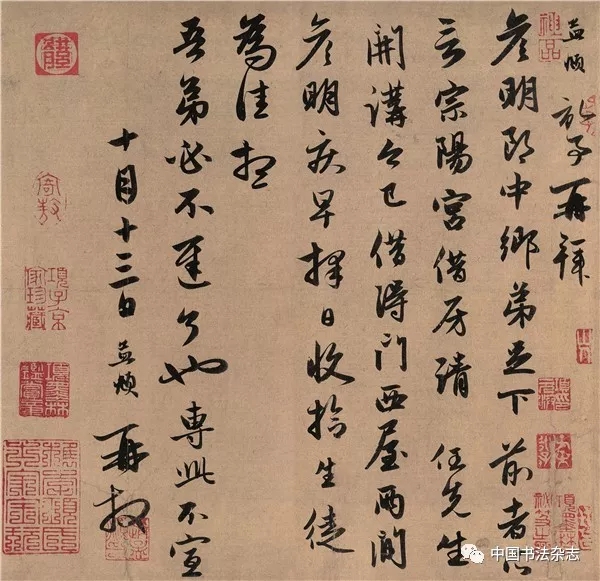 孟頫 再拜
彦明郎中鄉弟足下 前者所
言宗陽宮借房請 任先生
開講今已借得門西屋兩間
彦明疾早擇日收拾生徒
為佳想
吾弟必不遲了也專此不宣
十月十三日 孟頫 再拜
神品
項子京家珍藏
中国书法杂志